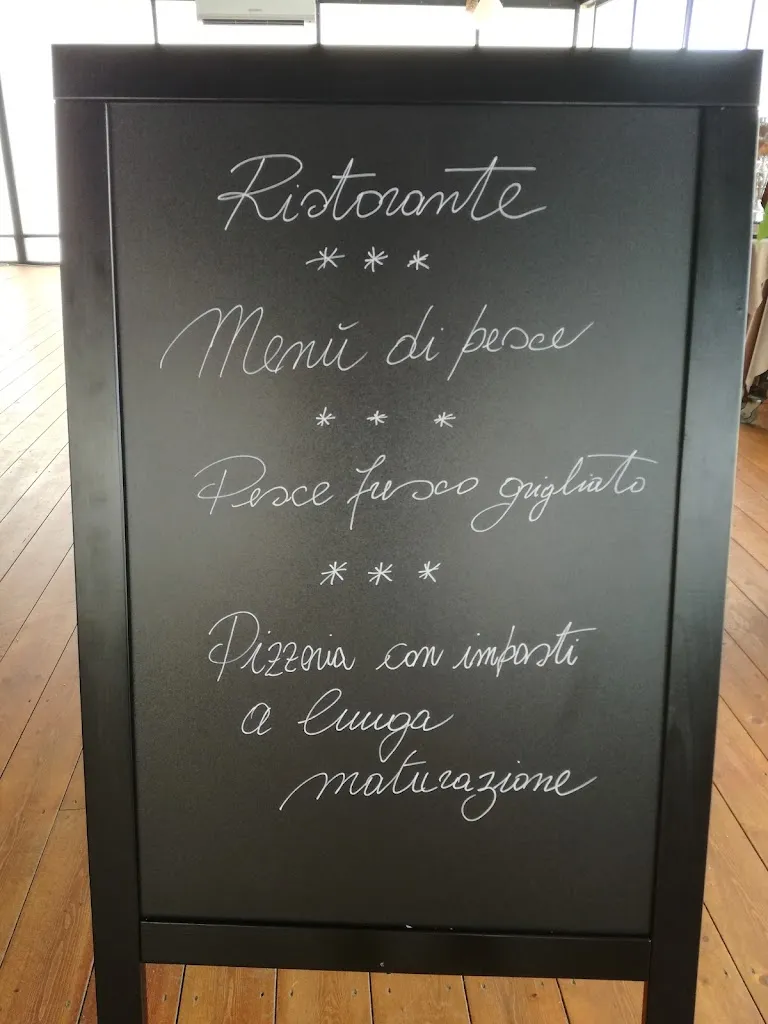 Ristorante
* * *
Menù di pesce
* * *
Pesce fresco grigliato
* * *
Pizzeria con impasti
a lunga
maturazione